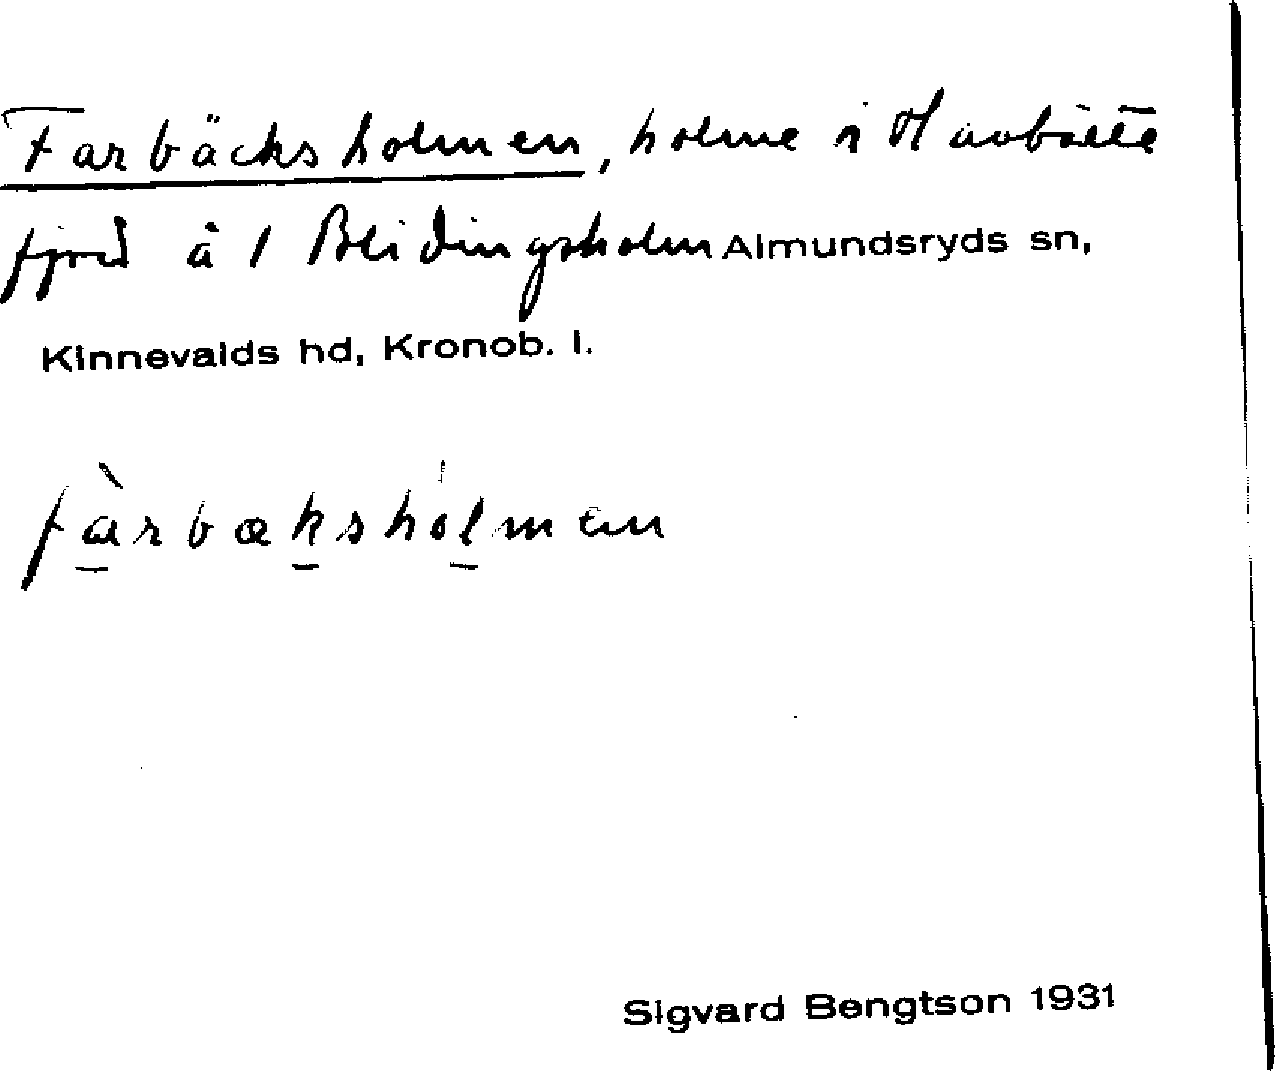 Farbäcksholmen, holme i Havbälte
fjord å 1 Blidingsholm Almundsryds sn,
Kinnevalds hd, Kronob. l.
fàrbæksholmen
Sigvard Bengtson 1931